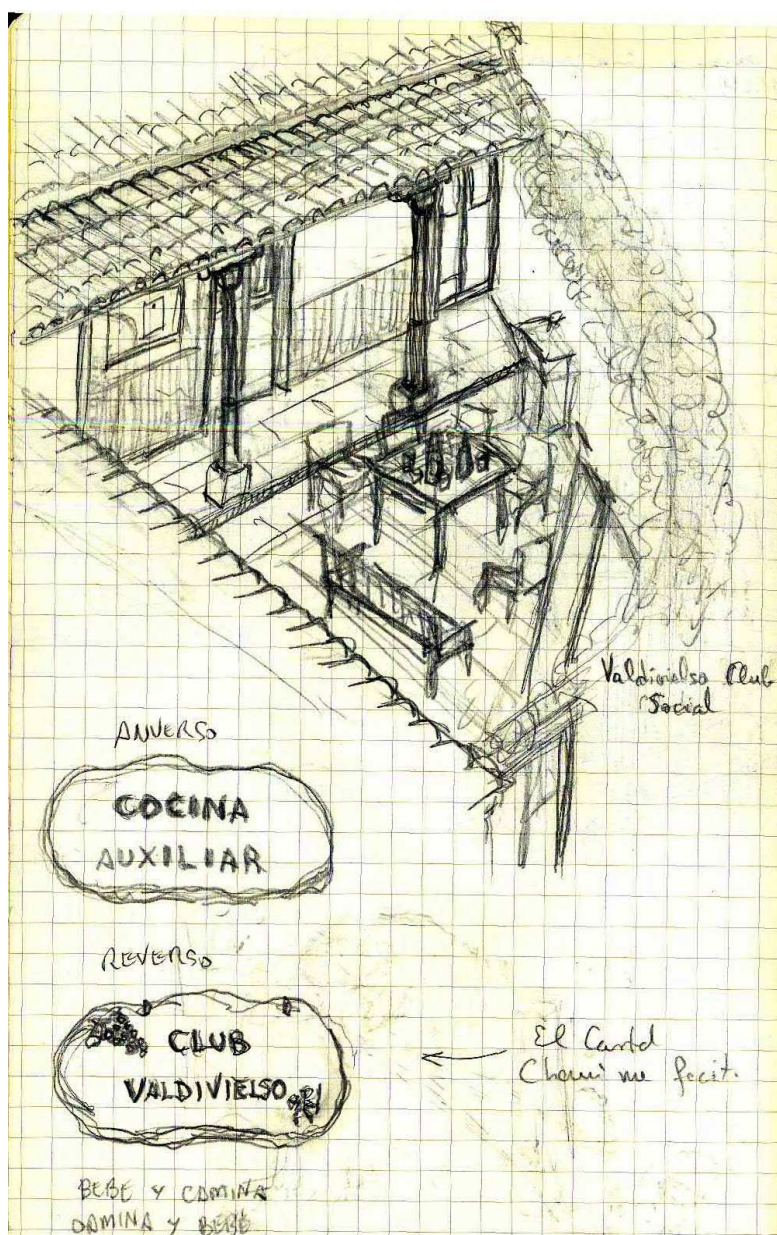 Valdivielso Club
Social
ANVERSO
COCINA
AUXILIAR
REVERSO
CLUB
VALDIVIELSO
El Cartel
Chemi me fecit.
BEBE Y CAMINA
CAMINA Y BEBE